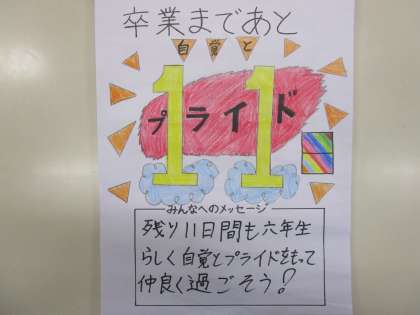 卒業まであと
自覚と
11
プライド
みんなへのメッセージ
残り11日間も六年生
らしく自覚とプライドをもって
仲良く過ごそう!